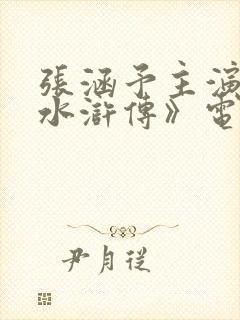 張涵予主演
水滸傳》電
尹月從